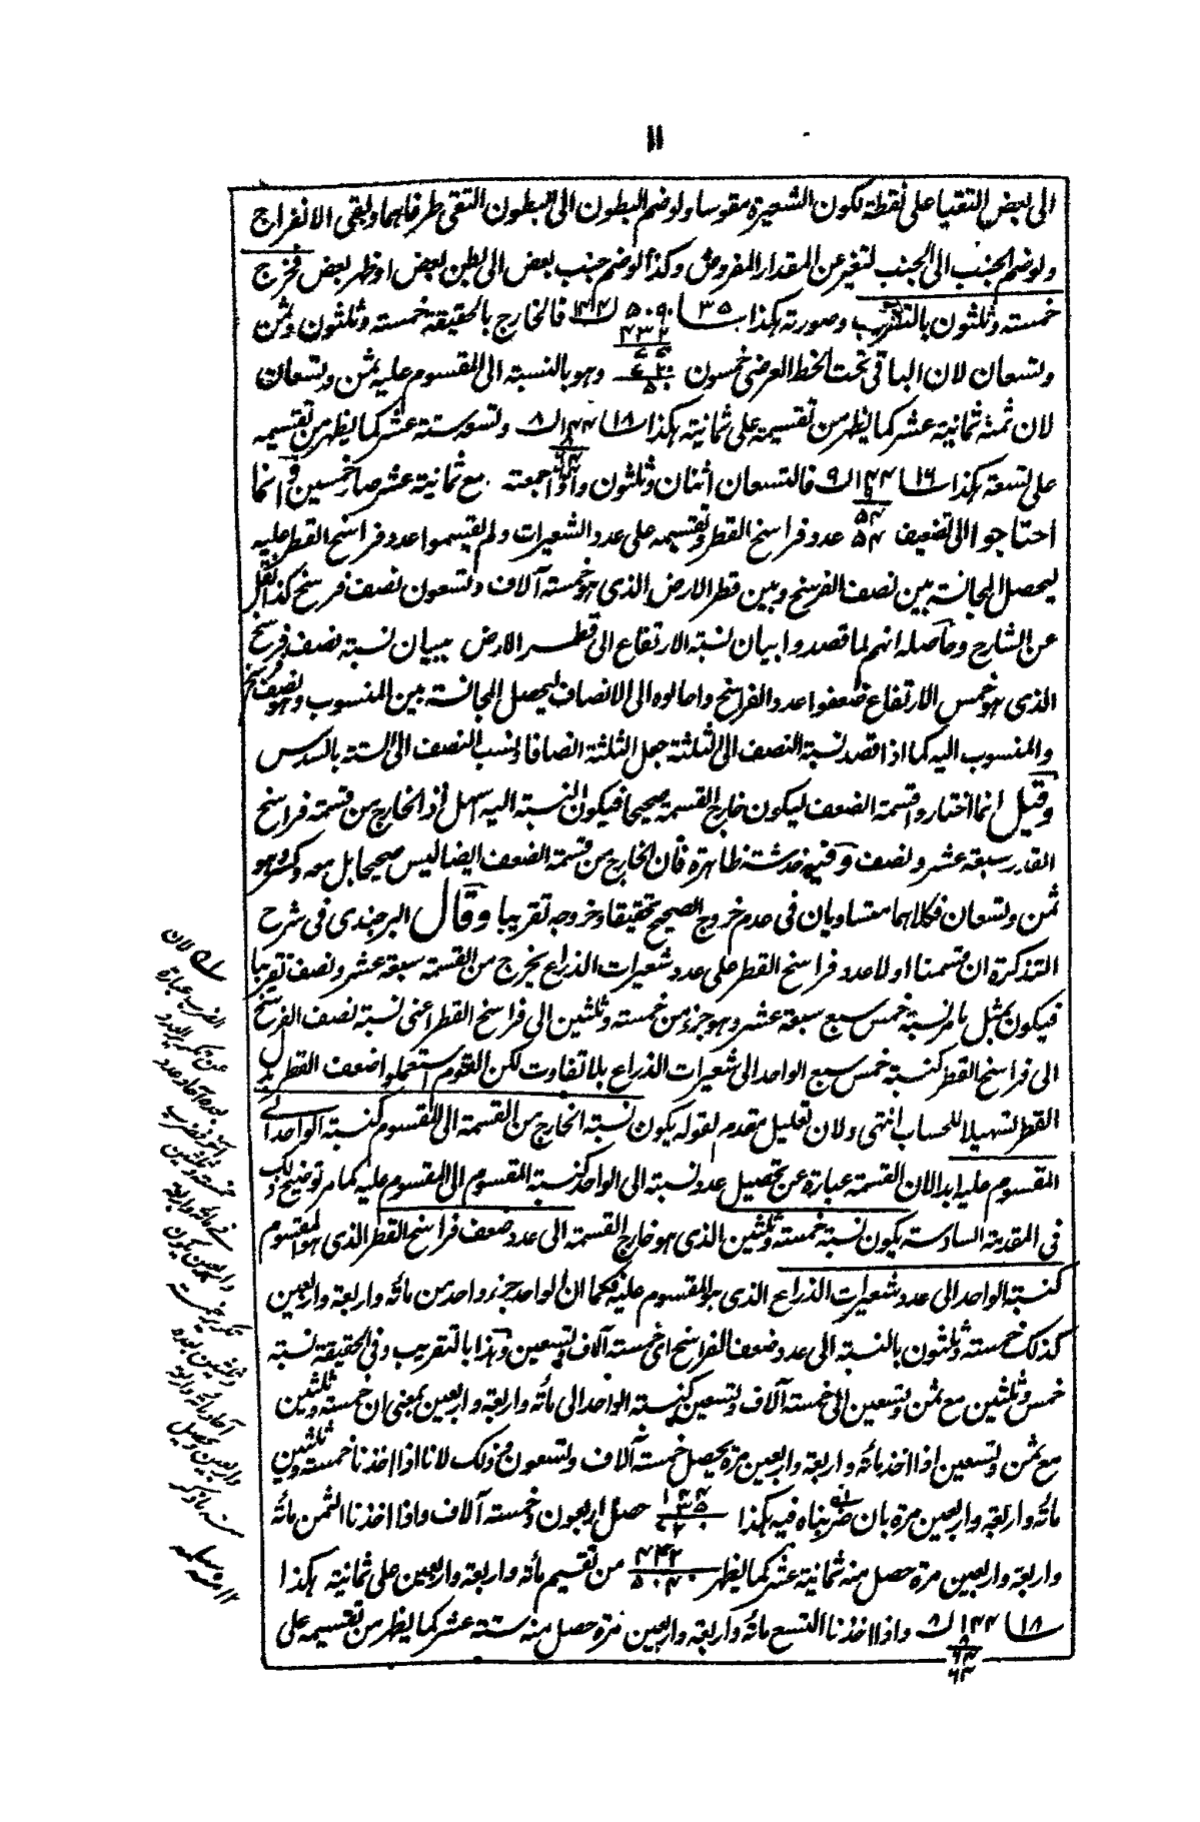 ١١
الى بعض التقيا على نقطة لكون الشعيرة مقوسا ولو ضم البطون الى البطون التقى طرفاهما وبقى الانفراج
ولو ضم الجنب الى الجنب لتغير عن المقدار المفروض وكذا لو ضم جنب بعض الى بطن بعض او ظهر بعض فخرج
خمسة وثلثون بالتقريب وصورته هكذا ٣٥ ٥٠٩٠ ١٤٤ فالخارج بالحقيقة خمسة وثلثون وثمن
٤٣٢
وتسعان لان الباقى تحت الخط العرضى خمسون ٧٢٠ ٥٠ وهو بالنسبة الى المقسوم عليه ثمن وتسعان
لان ثمنه ثمانية عشر كما يظهر من تقسيمه على ثمانية هكذا ١٨ ١٤٤ ٨ وتسعه ستة عشر كما يظهر من تقسيمه
على تسعة هكذا ١٦ ١٤٤ ٩ فالتسعان اثنان وثلثون واذا جمعته مع ثمانية عشر صار خمسين وانما
احتاجوا الى تضعيف ٥٤ عدد فراسخ القطر وتقسيمه على عدد الشعيرات ولم يقسموا عدد فراسخ القطر عليه
ليحصل المجانسة بين نصف الفرسخ وبين قطر الارض الذى هو خمسة آلاف وتسعون نصف فرسخ كذا نقل
عن الشارح وحاصله انهم لما قصدوا بيان نسبة الارتفاع الى قطر الارض ببيان نسبة نصف فرسخ
الذى هو خمس الارتفاع ضعفوا عدد الفراسخ واحالوه الى الانصاف ليحصل المجانسة بين المنسوب وهو نصف فرسخ
والمنسوب اليه كما اذا قصد نسبة النصف الى الثلثة جعل الثلثة انصافا ونسب النصف الى الستة بالسدس
وقيل انما اختاروا قسمة الضعف ليكون خارج القسمة صحيحا فيكون النسبة اليه اسهل اذ الخارج من قسمة فراسخ
القدر سبعة عشر ونصف وفيه خدشة ظاهرة فان الخارج من قسمة الضعف ايضا ليس صحيحا بل معه كسر وهو
ثمن وتسعان فكلاهما متساويان فى عدم خروج الصحيح تحقيقا وخروجه تقريبا وقال البرجندى فى شرح
التذكرة ان قسمنا اولا عدد فراسخ القطر على عدد شعيرات الذراع يخرج من القسمة سبعة عشر ونصف تقريبا
فيكون بمثل ما مر نسبة خمس سبع سبعة عشر وهو جزء من خمسة وثلثين الى فراسخ القطر اعنى نسبة نصف الفرسخ
الى فراسخ القطر كنسبة خمس سبع الواحد الى شعيرات الذراع بلا تفاوت لكن القوم استعملوا ضعف القطر بدل
القطر تسهيلا للحساب انتهى ولان تعليل مقدم لقوله يكون نسبة الخارج من القسمة الى المقسوم كنسبة الواحد الى
المقسوم عليه ابدا لان القسمة عبارة عن تحصيل عدد نسبته الى الواحد كنسبة المقسوم الى المقسوم عليه كما مر توضيح ذلك
فى المقدمة السادسة يكون نسبة خمسة وثلثين الذى هو خارج القسمة الى عدد ضعف فراسخ القطر الذى هو المقسوم
كنسبة الواحد الى عدد شعيرات الذراع الذى هو المقسوم عليه فكما ان الواحد جزء واحد من مائة واربعة واربعين
كذلك خمسة وثلثون بالنسبة الى عدد ضعف الفراسخ اى خمسة آلاف وتسعين وهذا بالتقريب وفى الحقيقة نسبة
خمس وثلثين مع ثمن وتسعين الى خمسة آلاف وتسعين كنسبة الواحد الى مائة واربعة واربعين بمعنى ان خمسة وثلثين
مع ثمن وتسعين اذا اخذ مائة واربعة واربعين مرة يحصل خمسة آلاف وتسعون وذلك لانا اذا اخذنا خمسة وثلثين
مائة واربعة واربعين مرة بان ضربناه فيه هكذا ١٤٤ ٣٥ ٧٢٠ حصل اربعون وخمسة آلاف واذا اخذنا الثمن مائة
واربعة واربعين مرة حصل منه ثمانية عشر كما يظهر ٤٣٢ ٥٠٤٠ من تقسيم مائة واربعة واربعين على ثمانية هكذا
١٨ ١٤٤ ٨ واذا اخذنا التسع مائة واربعة واربعين مرة حصل منه ستة عشر كما يظهر من تقسيمه على
٦٤
لان
الضرب عبارة
عن تكرير العدد